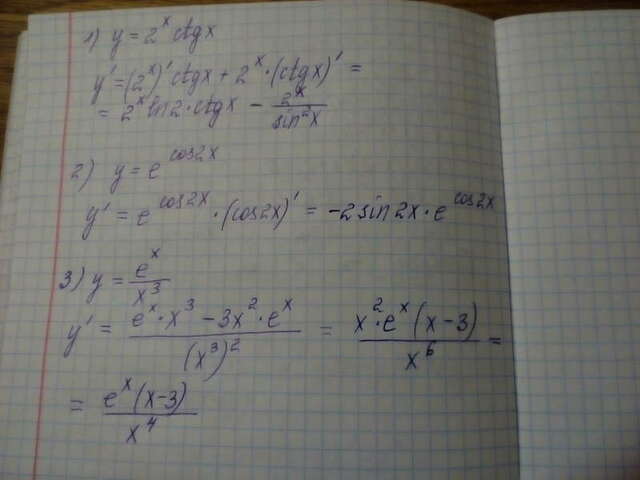 1) y = 2^x ctgx
y' = (2^x)' ctgx + 2^x · (ctgx)' =
= 2^x ln2 · ctgx − 2^x / sin^2x
2) y = e^cos2x
y' = e^cos2x · (cos2x)' = −2sin2x · e^cos2x
3) y = e^x / x^3
y' = (e^x · x^3 − 3x^2 · e^x) / (x^3)^2 = x^2 · e^x (x−3) / x^6 =
= e^x (x−3) / x^4